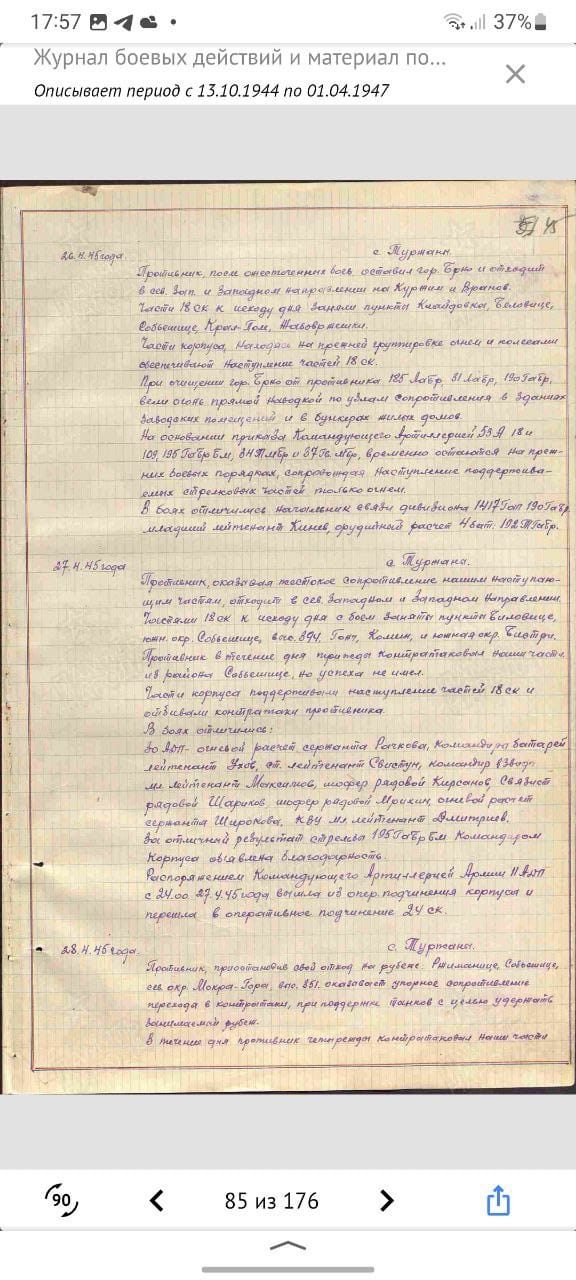 17:57
37%
Журнал боевых действий и материал по...
Описывает период с 13.10.1944 по 01.04.1947
45
26.4.45 года
с. Туржани.
Противник, после ожесточенных боев оставил гор. Брно и отходит
в сев. Зап. и Западном направлении на Куржим и Вранов.
Части 18 СК к исходу дня заняли пункты Клайдовка, Беловице,
Собешице, Крал-Поле, Жабовржешки.
Части корпуса, находясь на прежней группировке огнем и колесами
обеспечивают наступление частей 18 СК.
При очищении гор. Брно от противника 185 Лабр, 31 Лабр, 190 Габр,
вели огонь прямой наводкой по узлам сопротивления в зданиях
заводских помещений и в бункерах жилых домов.
На основании приказа Командующего Артиллерией 53 А 18 и
109, 195 Габр БМ, 34 ТМбр и 37 Гв. Мбр, временно остаются на преж-
них боевых порядках, сопровождая наступление поддерживае-
емых стрелковых частей только огнем.
В боях отличились начальник связи дивизиона 1417 Гап 190 Габр.
младший лейтенант Кинев, орудийный расчет 4 бат. 192 ТГабр.
27.4.45 года
с. Туржани.
Противник, оказывая жестокое сопротивление нашим наступаю-
щим частям, отходит в сев. Западном и Западном направлении.
Частями 18 СК к исходу дня с боем заняты пункты Биловице,
южн. окр. Собешице, выс. 394, Комин, и южная окр. Бистрц.
Противник в течение дня трижды контратаковал наши части
из района Собешице, но успеха не имел.
Части корпуса поддерживали наступление частей 18 СК и
отбивали контратаки противника.
В боях отличились:
огневой расчет сержанта Рачкова, командир батареи
лейтенант Ухов, ст. лейтенант Свистун, командир взвода
мл. лейтенант Максимов, шофер рядовой Кирсанов, Связист
рядовой Шариков, шофер рядовой Мрихин, огневой расчет
сержанта Широкова, КВУ мл. лейтенант Дмитриев.
За отличный результат стрельб 195 Габр БМ Командиром
Корпуса объявлена благодарность.
Распоряжением Командующего Артиллерией Армии 11 АДП
с 24.00 27.4.45 года вышла из опер. подчинения корпуса и
перешла в оперативное подчинение 24 СК.
28.4.45 года.
с. Туржаны.
Противник, приостановив свой отход на рубеже: Ржиманице, Собешице,
сев. окр. Мокра-Гора, выс. 351. оказывает упорное сопротивление
перехода в контратаки, при поддержке танков с целью удержать
занимаемый рубеж.
В течение дня противник четырежды контратаковал наши части
90
85 из 176